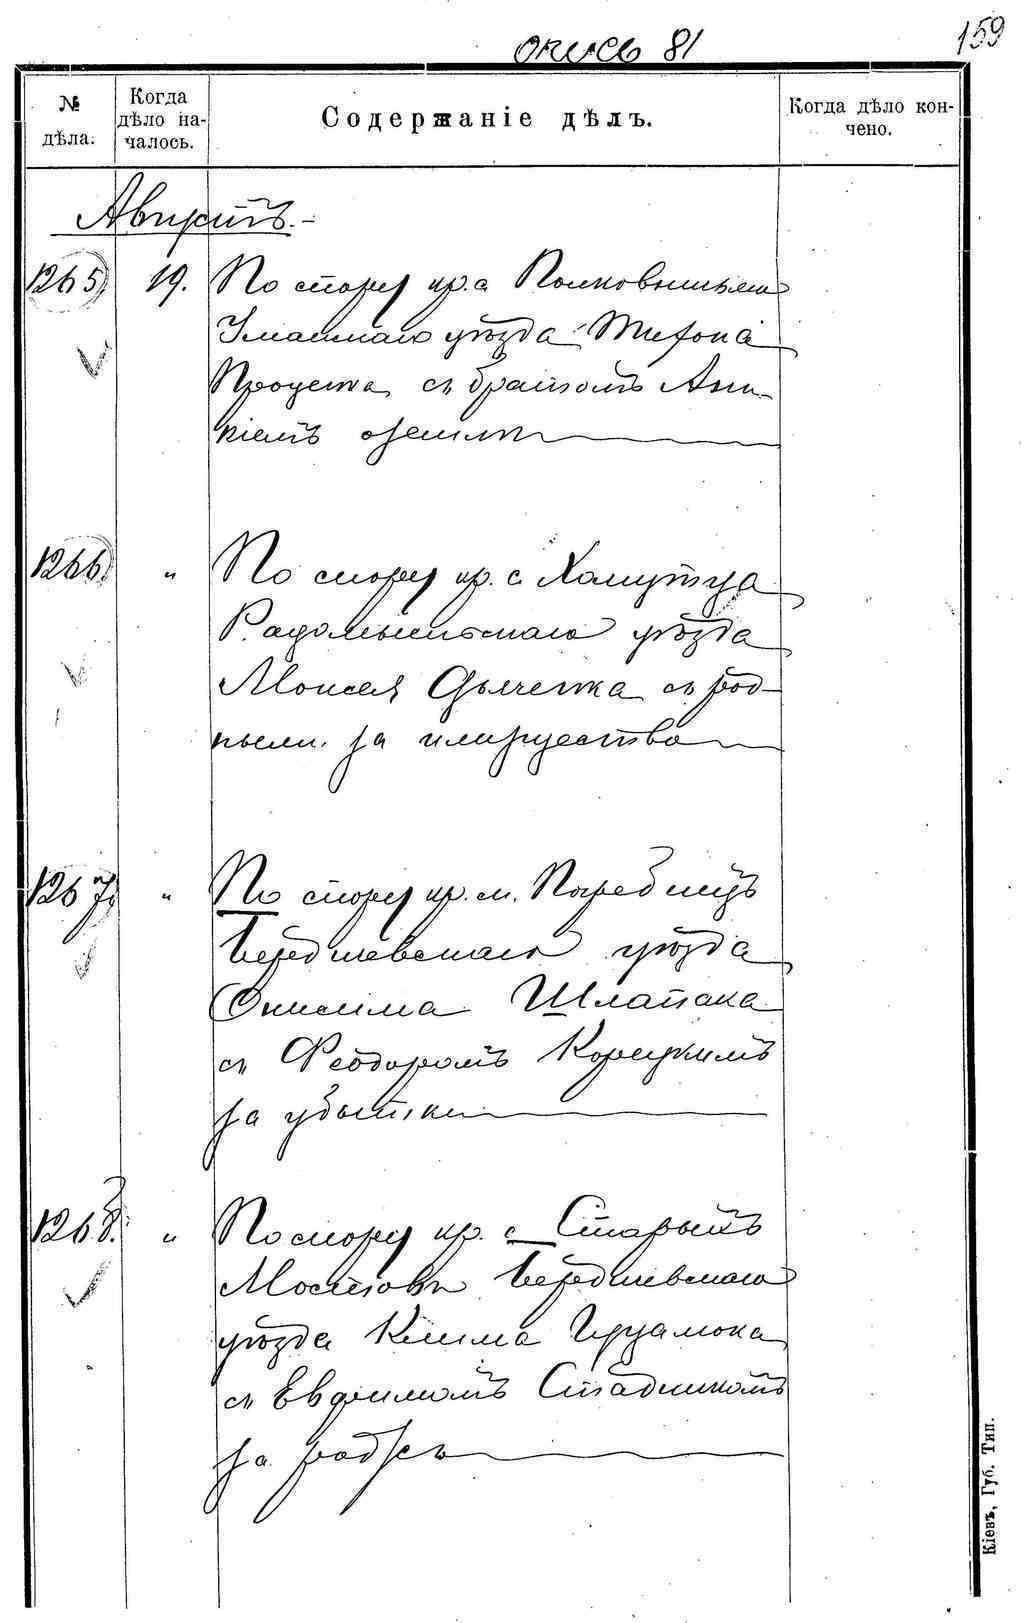 опись 81
159
№ дѣла.
Когда дѣло на-
чалось.
Содержаніе дѣлъ.
Когда дѣло кон-
чено.
Августъ.
1265 19. По спору кр. с Полковничьяго
Уманскаго уѣзда Тихона
Проценка съ братомъ
о землѣ
1266. " По спору кр. с Хомутца
Радомысльскаго уѣзда
Моисея Дьяченка съ род-
ными за имущество
1267. " По спору кр. м. Погребищъ
Бердичевскаго уѣзда
Онисима Шлапака
съ Феодоромъ Корецкимъ
за убытки
1268. " По спору кр. с Старыхъ
Мостовъ Бердичевскаго
уѣзда Клима
съ Евфимомъ Стадникомъ
за
Кіевъ, Губ. Тип.